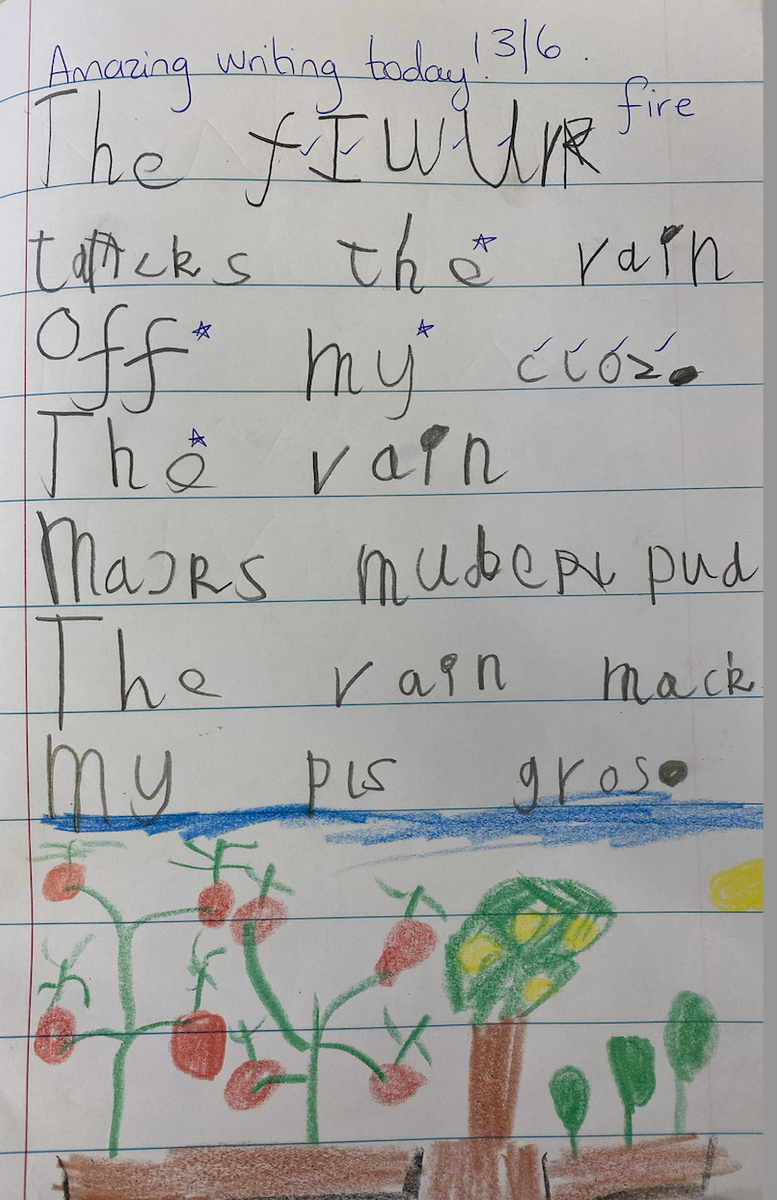 Amazing writing today! 3/6.
The fIWUR fire
tacks the rain
Off my cloz.
The rain
Macks muderl pud
The rain mack
My pls gros.